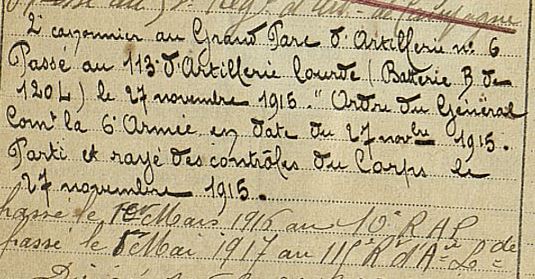 Passé au 5e Régt d'Art. de Campagne
2e canonnier au Grand Parc d'Artillerie no 6
Passé au 113e d'Artillerie lourde (Batterie B de
120L) le 27 novembre 1915. "Ordre du Général
Comt la 6e Armée en date du 27 novbre 1915.
Parti et rayé des contrôles du Corps le
27 novembre 1915.
passé le 1er Mars 1916 au 10e R A P
passé le 8 Mai 1917 au R d'Aie Lde de